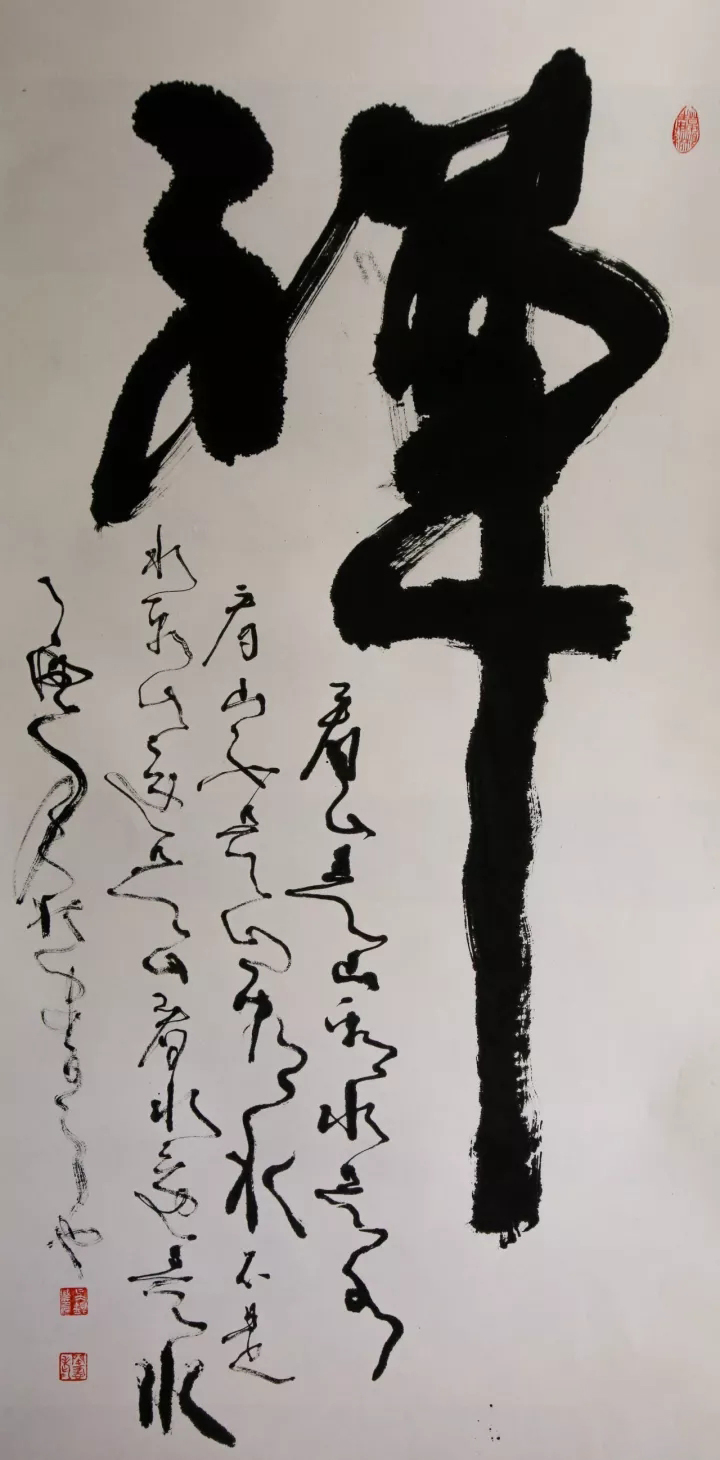 禪
看山是山看水是水
看山不是山看水不是
水看山还是山看水还是水